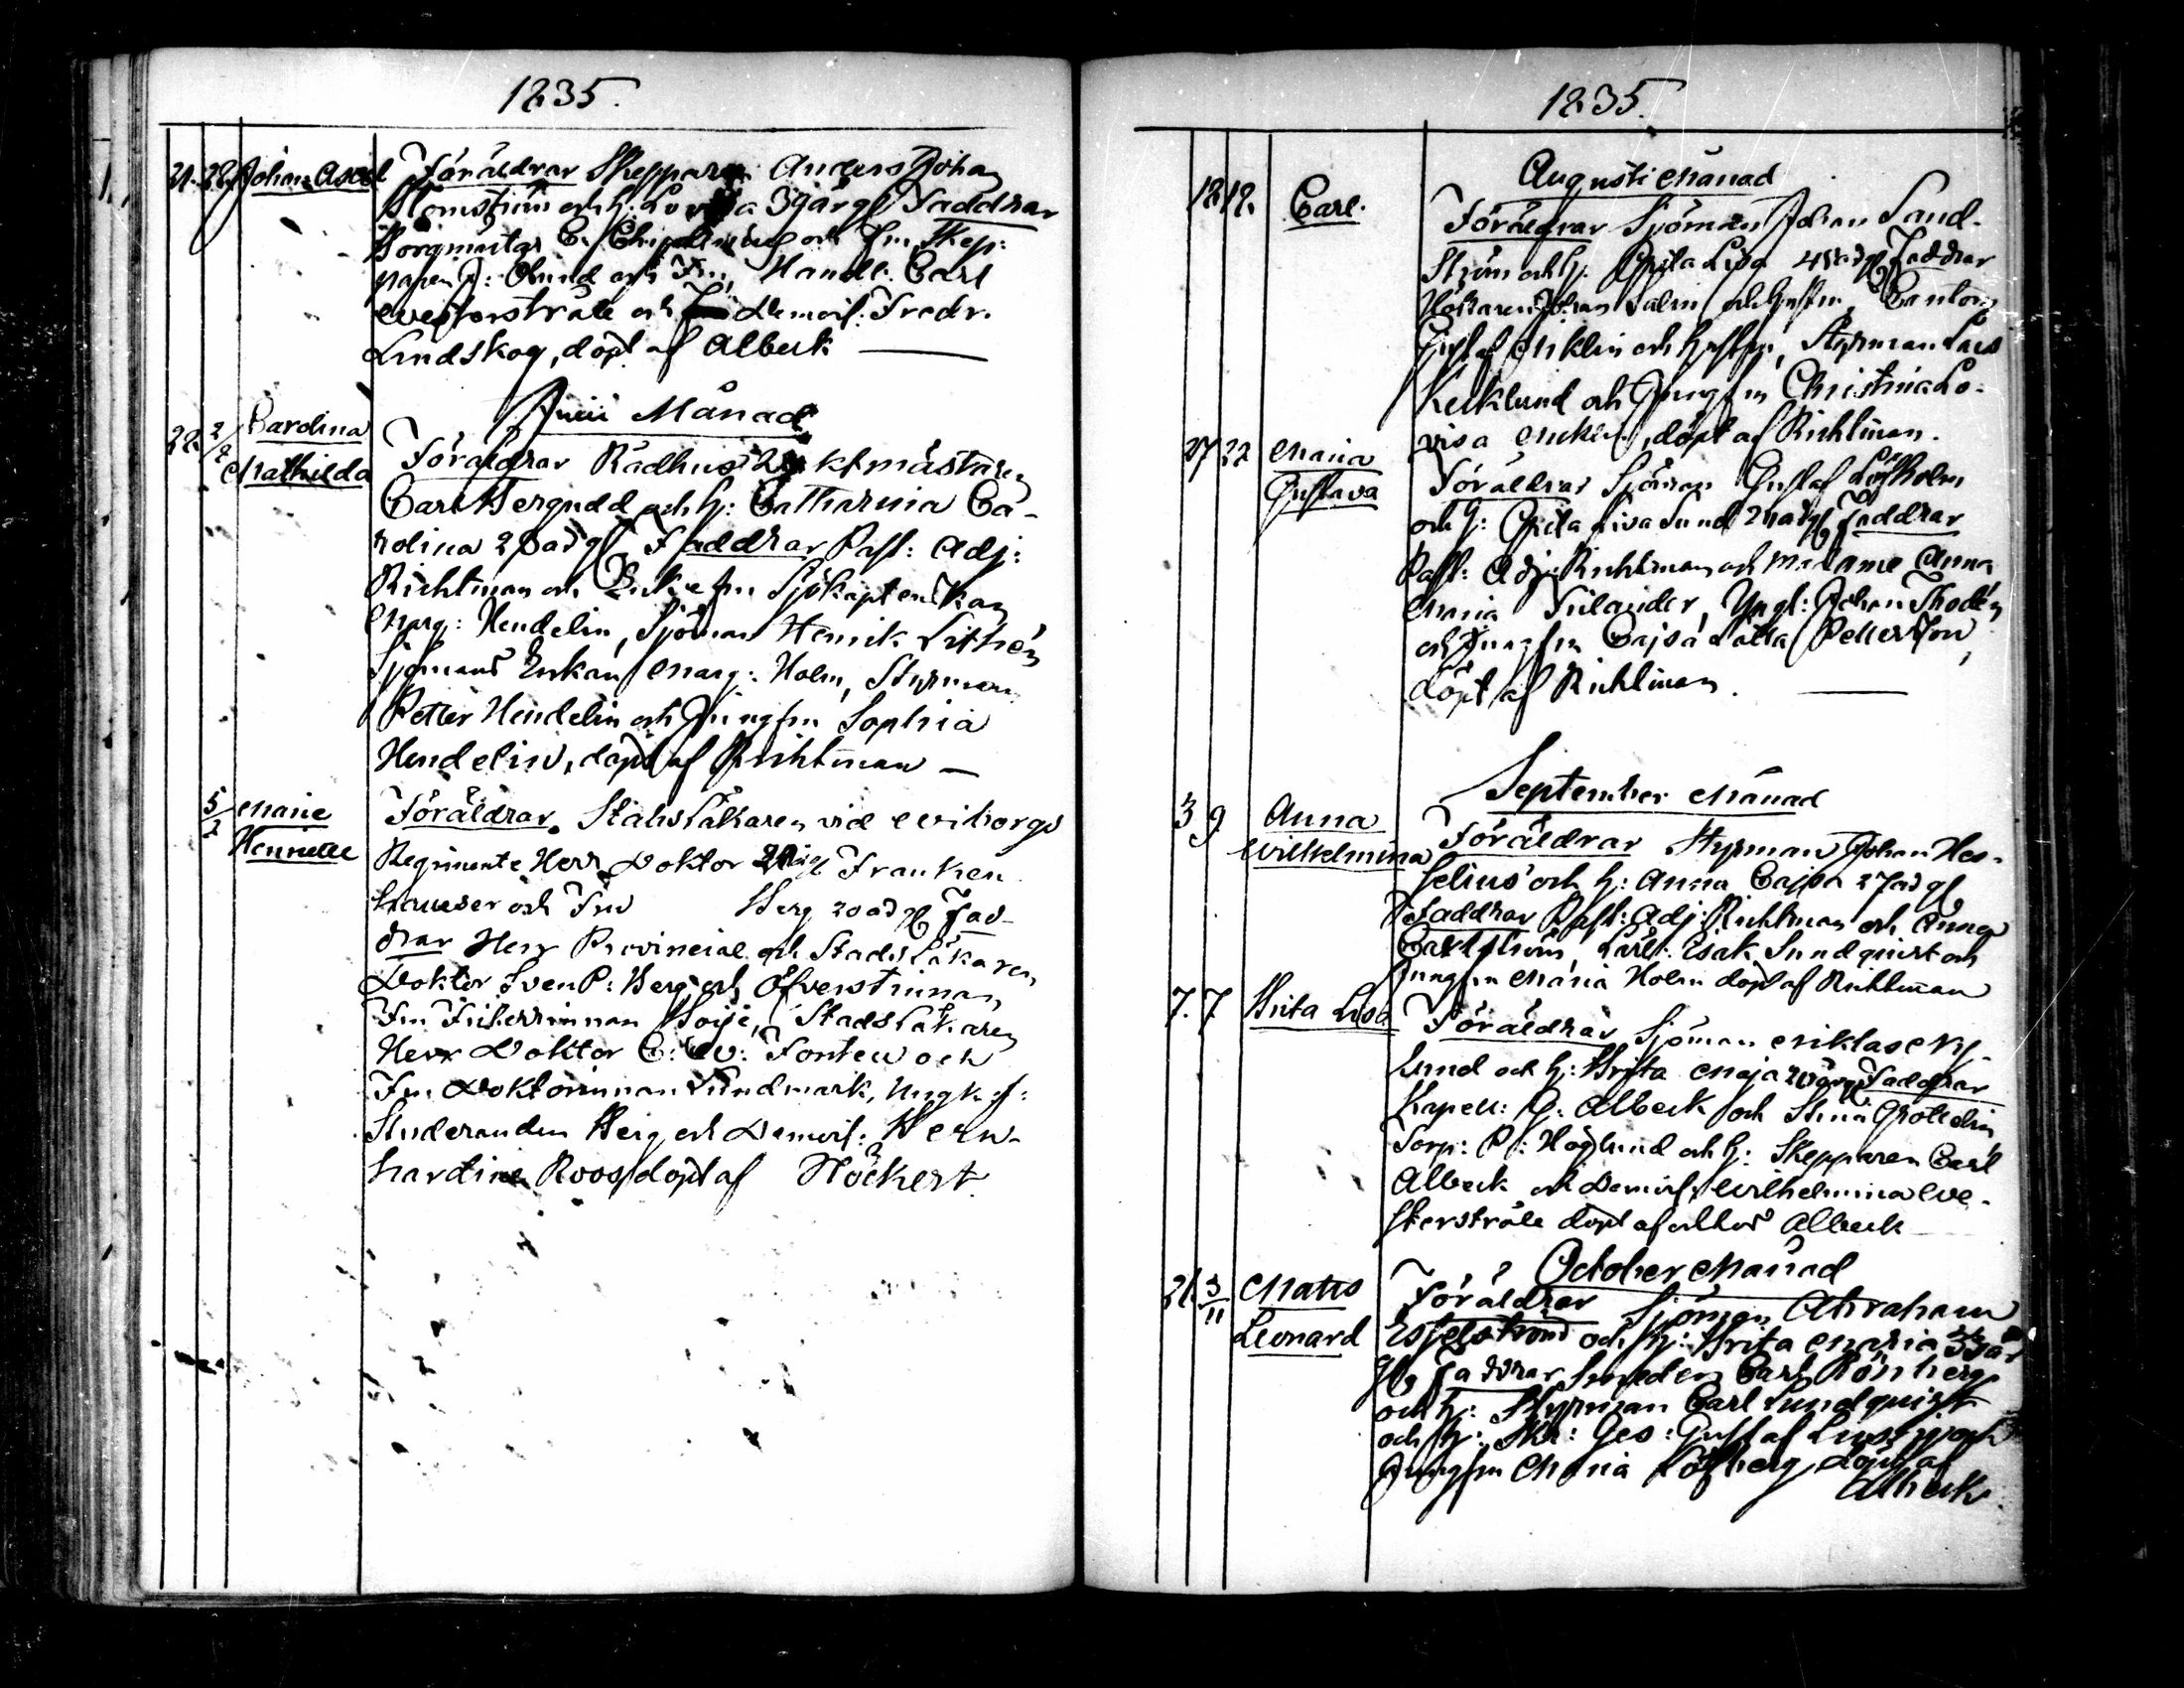 1835.
21. 28 Johan Axel Föräldrar Skepparen Anders Johan
Blomström och H: Lovisa 39årgl Faddrar
Borgmästar C: och Fru Skep:
paren J: Elund och Fru, Handl: Carl
Westerstråle och Demois: Fredr.
Lindskog, döpt af Albeck
Junii Månad
22. 2/7 Carolina Mathilda
Föräldrar Rådhus mästaren
Carl Bergudd och H: Catharina Ca-
rolina 28årgl Faddrar Past: Adj:
Richtman och Enkefru Sjökaptenskan
Marg: Hendelin, Sjöman Henrik Lithén
Sjömans Enkan Marg: Holm, Styrman
Petter Hendelin och Jungfru Sophia
Hendelin, döpt af Richtman
5/7 Marie Henriette
Föräldrar Stabsläkaren vid Wiborgs
Regimente Herr Doktor Franken
haueser och Fru Berg 20årgl Fad-
drar Herr Provincial och Stads Läkaren
Doktor Sven P: Berg och Öfverstinnan
Fru Friherrinnan Boije, StadsLäkaren
Herr Doktor C: W: Fontell och
Fru Doktorinnan Lundmark, Ungk:
Studeranden Berg och Demois: Bern-
hardine Roos döpt af Höckert.
1835.
Augusti Månad
18 18. Carl. Föräldrar Sjöman Johan Sand-
ström och H: Greta Lisa 45årgl Faddrar
Hökaren Johan Salin och Hustru, Cantor
Gustaf Miklin och Hustru, Styrman Lars
Kecklund och Jungfru Christina Lo-
visa Miklin, döpt af Richtman.
17 22 Maria Gustava
Föräldrar Sjöman Gustaf Löfholm
och H: Greta Lisa Lund Faddrar
Past: Adj: Richtman och Madame Anna
Maria Filander, Yngl: Johan Thodén
och Jungfru Cajsa Lotta Petterson,
döpt af Richtman.
September Månad
3 9 Anna Wilhelmina
Föräldrar Styrman Johan Hes-
selius och H: Anna Cajsa 27årgl
Faddrar Past: Adj: Richtman och Anna
Carlström, Isak Sundquist och
Jungfru Maria Holm döpt af Richtman
7. 7 Brita Lisa Föräldrar Sjöman Niklas Ny-
lund och H: Brita Maja Faddrar
Kapell: G: Albeck och Stina Grottelin
Torp: P: Höglund och H: Skepparen Carl
Albeck och Demois: Wilhelmina We-
sterstråle döpt af Albeck
October Månad
21 3/11 Matts Leonard
Föräldrar Sjöman Abraham
och H: Brita Maria 33år
gl, Faddrar Smeden Carl Rönberg
och H: Styrman Carl Sundquist
och H: Skr: Ges: Gustaf och
Jungfru Maria Löfberg döpt af
Albeck.